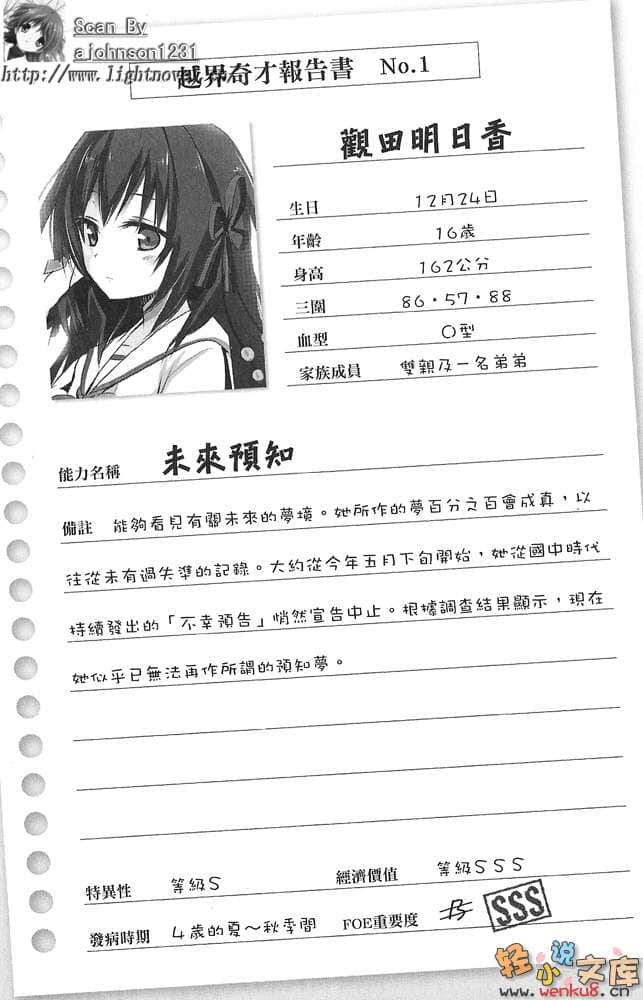 Scan By
ajohnson1231
http://www.lightnov
越界奇才報告書 No.1
觀田明日香
生日 12月24日
年齡 16歲
身高 162公分
三圍 86・57・88
血型 O型
家族成員 雙親及一名弟弟
能力名稱 未來預知
備註 能夠看見有關未來的夢境。她所作的夢百分之百會成真，以
往從未有過失準的記錄。大約從今年五月下旬開始，她從國中時代
持續發出的「不幸預告」悄然宣告中止。根據調查結果顯示，現在
她似乎已無法再作所謂的預知夢。
特異性 等級S 經濟價值 等級SSS
發病時期 4歲的夏～秋季間 FOE重要度 SSS
轻小说文库
www.wenku8.cn